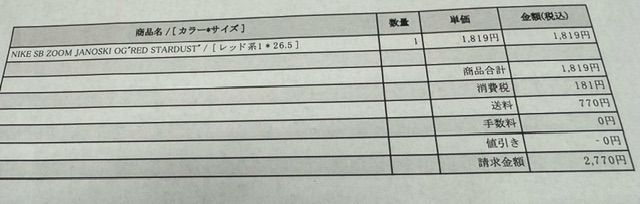 商品名 / [ カラー*サイズ ] 数量 単価 金額(税込)
NIKE SB ZOOM JANOSKI OG"RED STARDUST" / [ レッド系1 * 26.5 ] 1 1,819円 1,819円
商品合計 1,819円
消費税 181円
送料 770円
手数料 0円
値引き - 0円
請求金額 2,770円